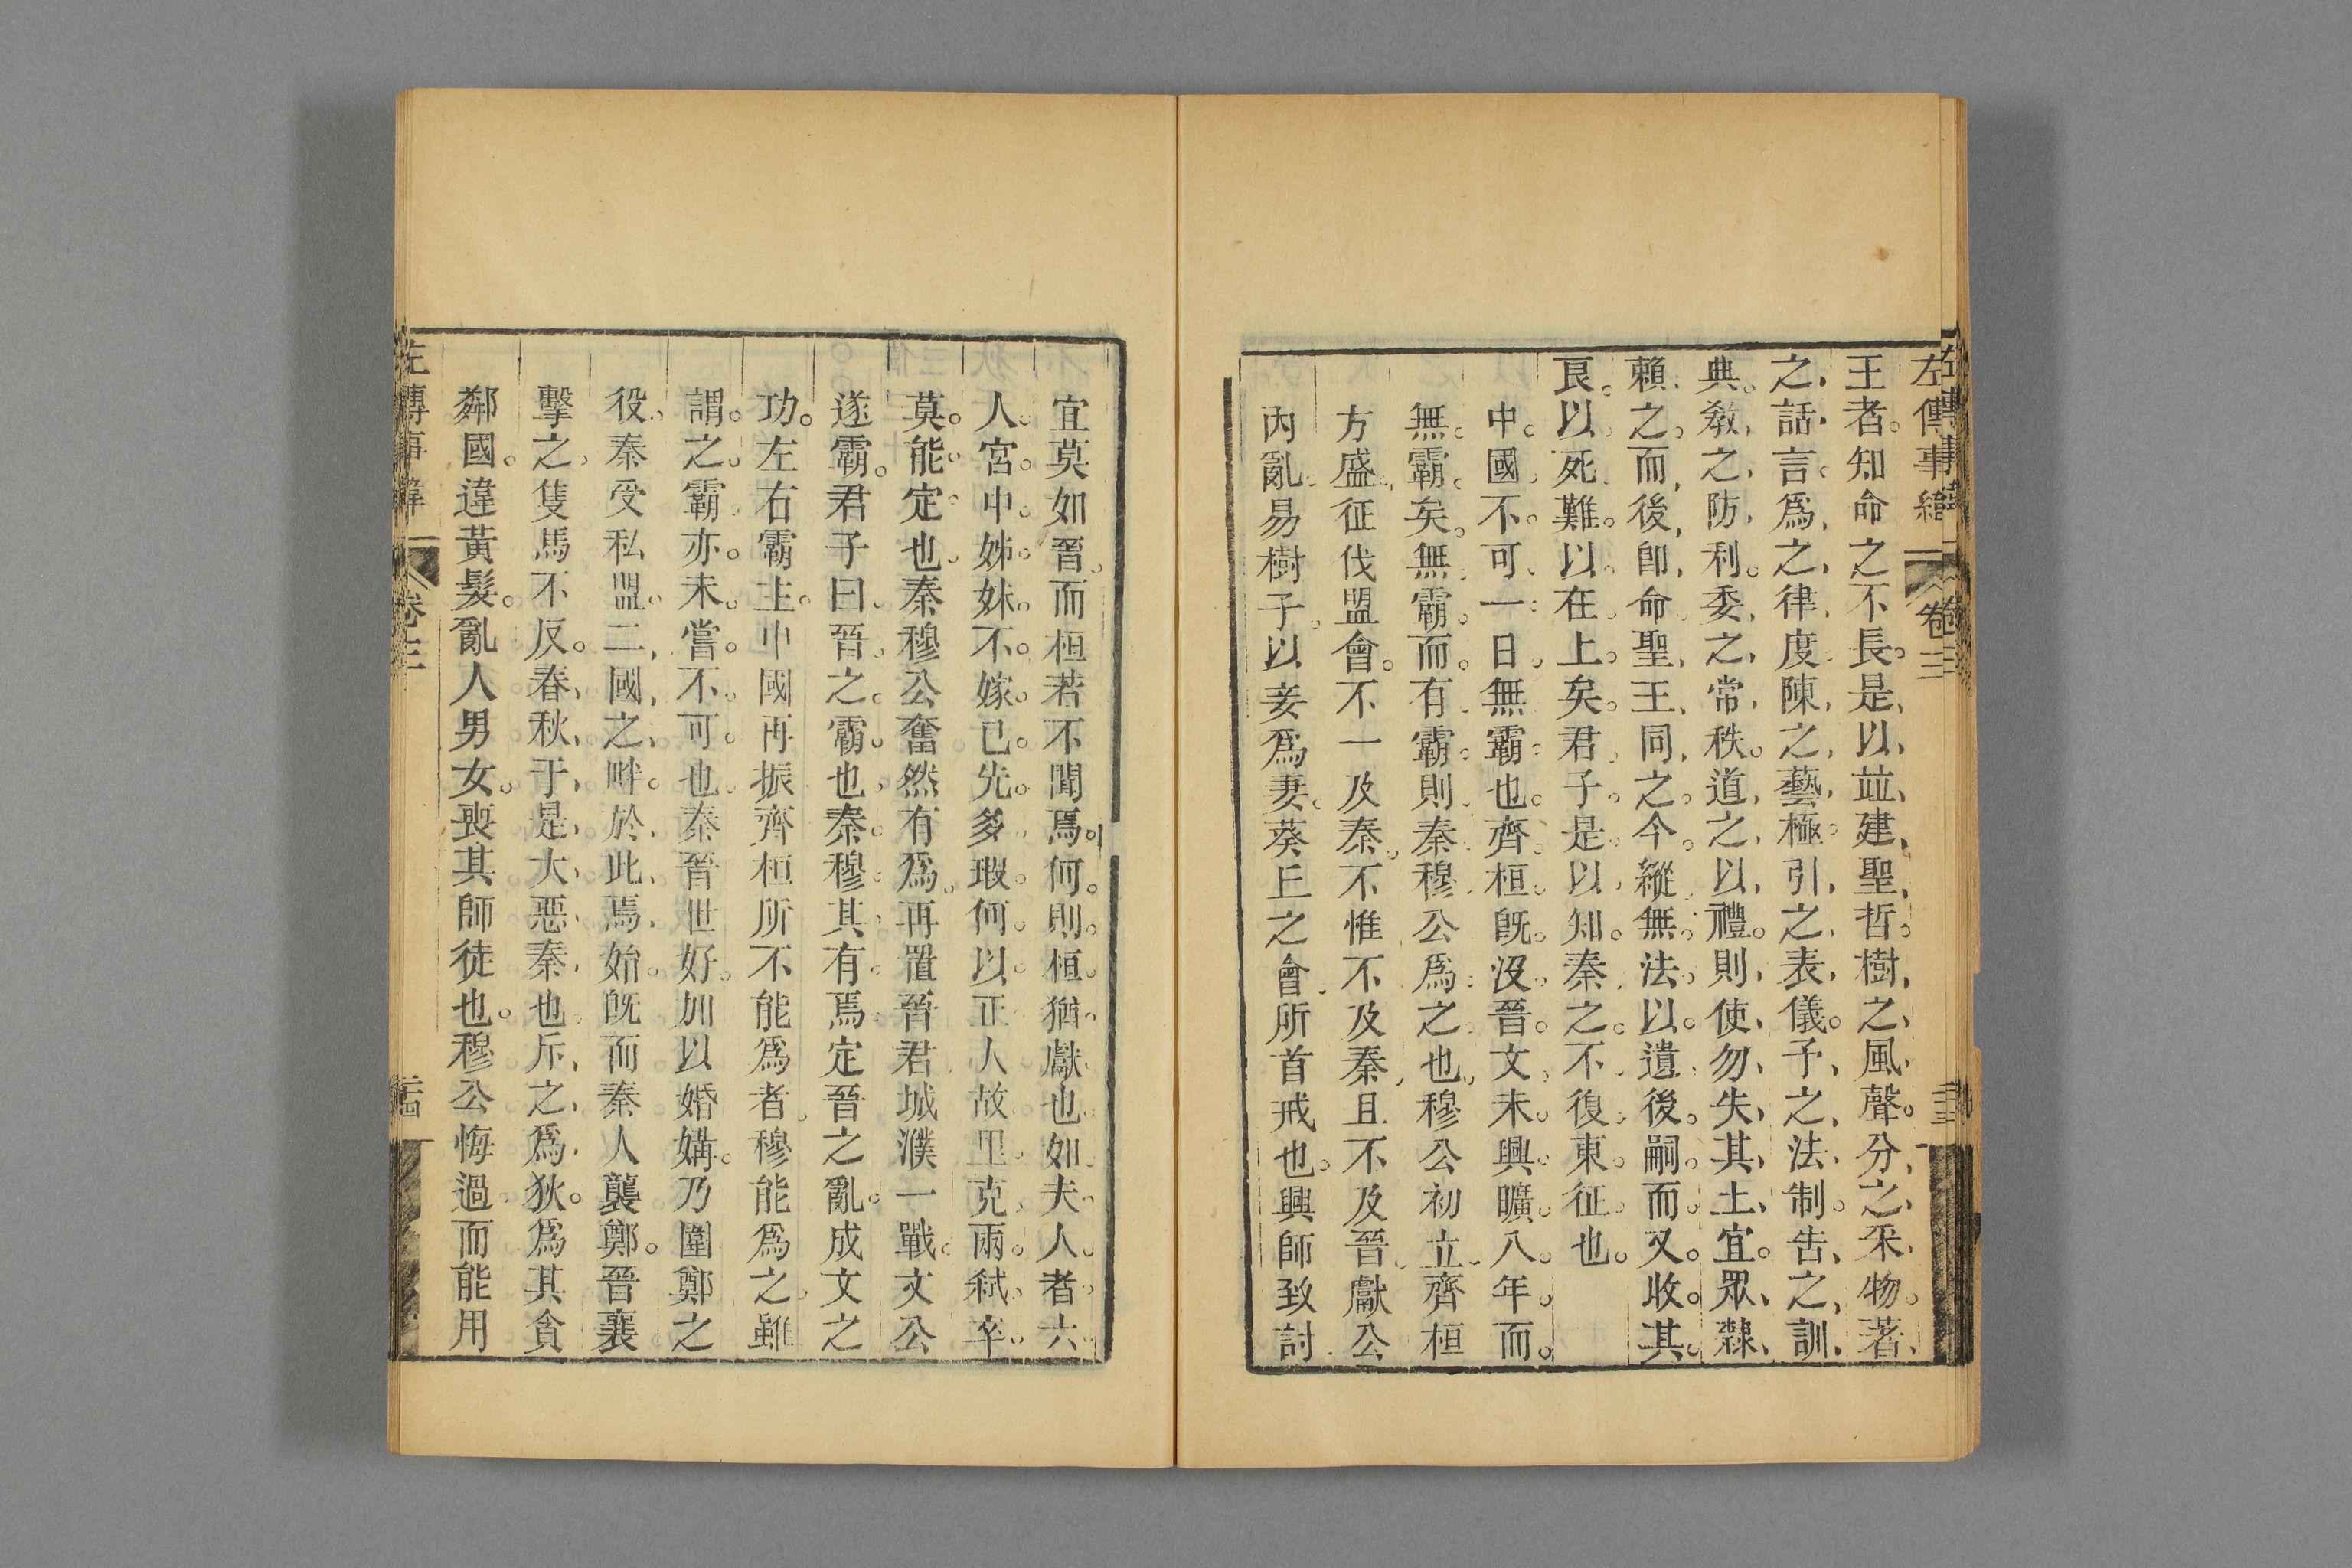 左傳事緯 卷三
王者知命之不長是以竝建聖哲樹之風聲分之采物著
之話言爲之律度陳之藝極引之表儀予之法制告之訓
典敎之防利委之常秩道之以禮則使勿失其土宜眾隸
賴之而後卽命聖王同之今縱無法以遺後嗣而又收其
良以死難以在上矣君子是以知秦之不復東征也
中國不可一日無霸也齊桓旣沒晉文未興曠八年而
無霸矣無霸而有霸則秦穆公爲之也穆公初立齊桓
方盛征伐盟會不一及秦不惟不及秦且不及晉獻公
內亂易樹子以妾爲妻葵丘之會所首戒也興師致討
宜莫如晉而桓若不聞焉何則桓猶獻也如夫人者六
人宮中姊妹不嫁已先多瑕何以正人故里克兩弑卒
莫能定也秦穆公奮然有爲再置晉君城濮一戰文公
遂霸君子曰晉之霸也秦穆其有焉定晉之亂成文之
功左右霸主中國再振齊桓所不能爲者穆能爲之雖
謂之霸亦未嘗不可也秦晉世好加以婚媾乃圍鄭之
役秦受私盟二國之畔於此焉始旣而秦人襲鄭晉襄
擊之隻馬不反春秋于是大惡秦也斥之爲狄爲其貪
鄰國違黃髮亂人男女喪其師徒也穆公悔過而能用
左傳事緯 卷三